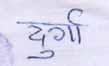 दुर्गा